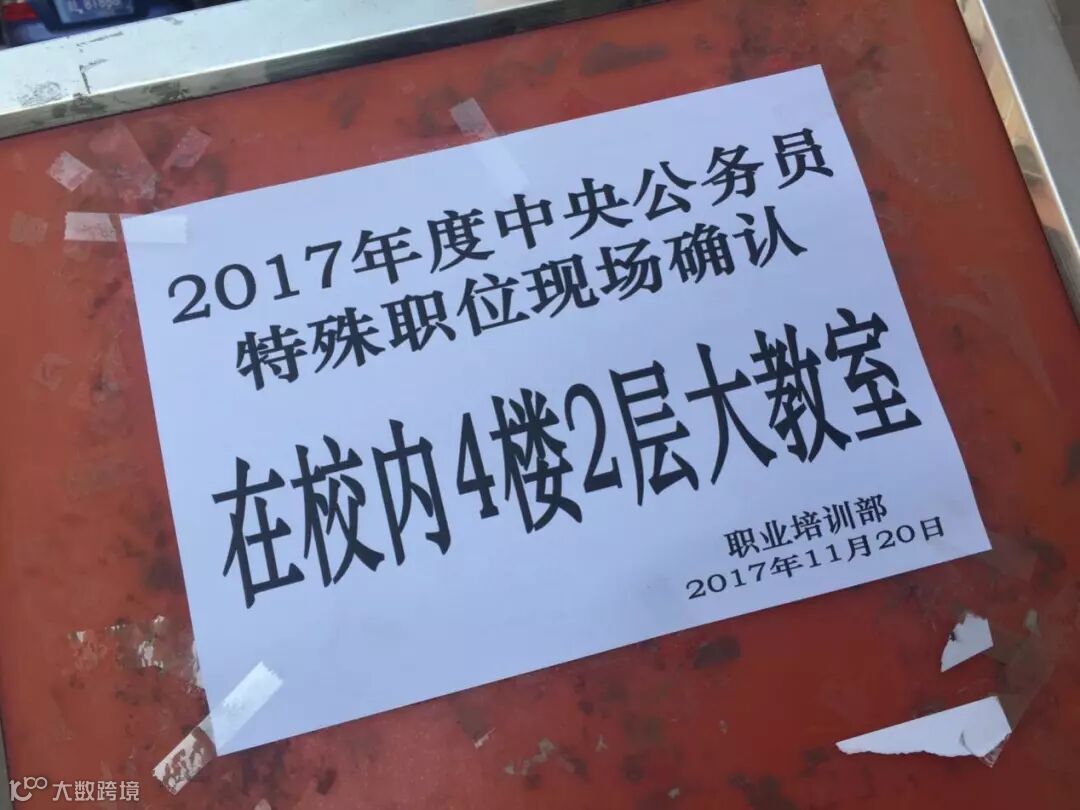 2017年度中央公务员
特殊职位现场确认
在校内4楼2层大教室
职业培训部
2017年11月20日
大数跨境